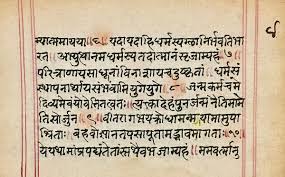 म्यात्ममायया ॥६॥ यदायदाहिधर्मस्यग्लानिर्भवतिभा
रत ॥ अभ्युत्थानमधर्मस्यतदात्मानंसृजाम्यहं ॥७
परित्राणायसाधूनांविनाशायचदुष्कृतां ॥ धर्मसं
स्थापनार्थायसंभवामियुगेयुगे ॥८॥ जन्मकर्मचमे
दिव्यमेवंयोवेत्तितत्वतः ॥ त्यक्त्वादेहंपुनर्जन्मनैतिमामे
तिसोर्जुन ॥९॥ वीतरागभयक्रोधामन्मयामामुपा
श्रिताः ॥ बहवोज्ञानतपसापूतामद्भावमागताः ॥१०
येयथामांप्रपद्यंतेतांस्तथैवभजाम्यहं ॥ ममवर्त्मानु